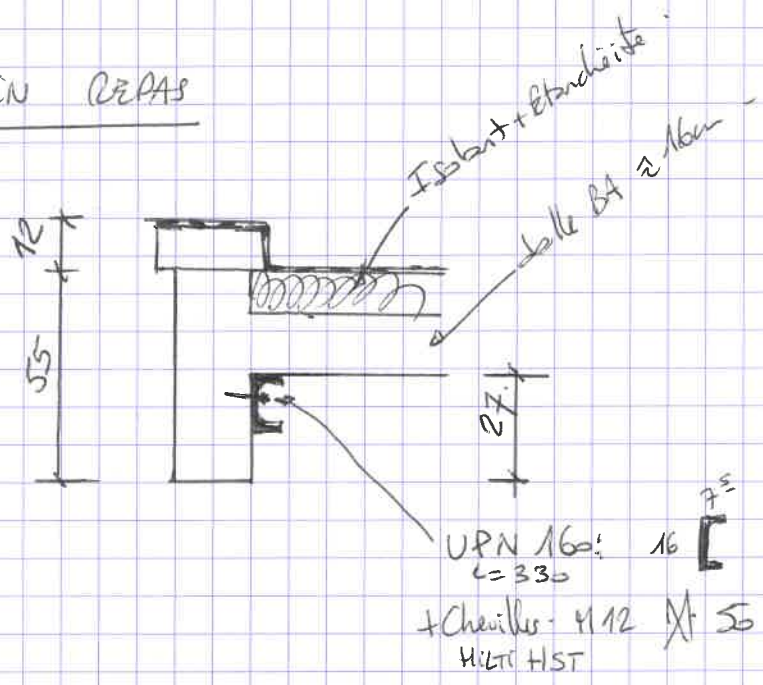 REPAS
Isolant + Etanchéité
dalle BA ≈ 16cm
12
55
27
UPN 160: 16 7⁵
L = 330
+ Chevilles - M12 50
HILTI HST